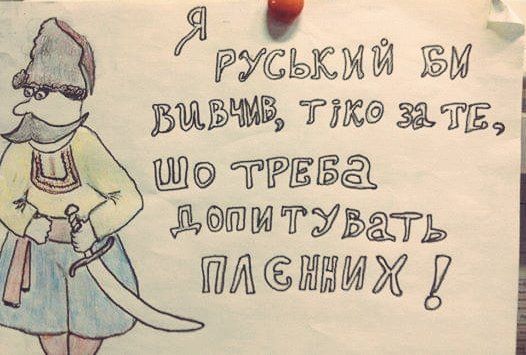 Я
РУСЬКИЙ БИ
ВИВЧИВ, ТІКО ЗА ТЕ,
ШО ТРЕБА
ДОПИТУВАТЬ
ПЛЄННИХ!